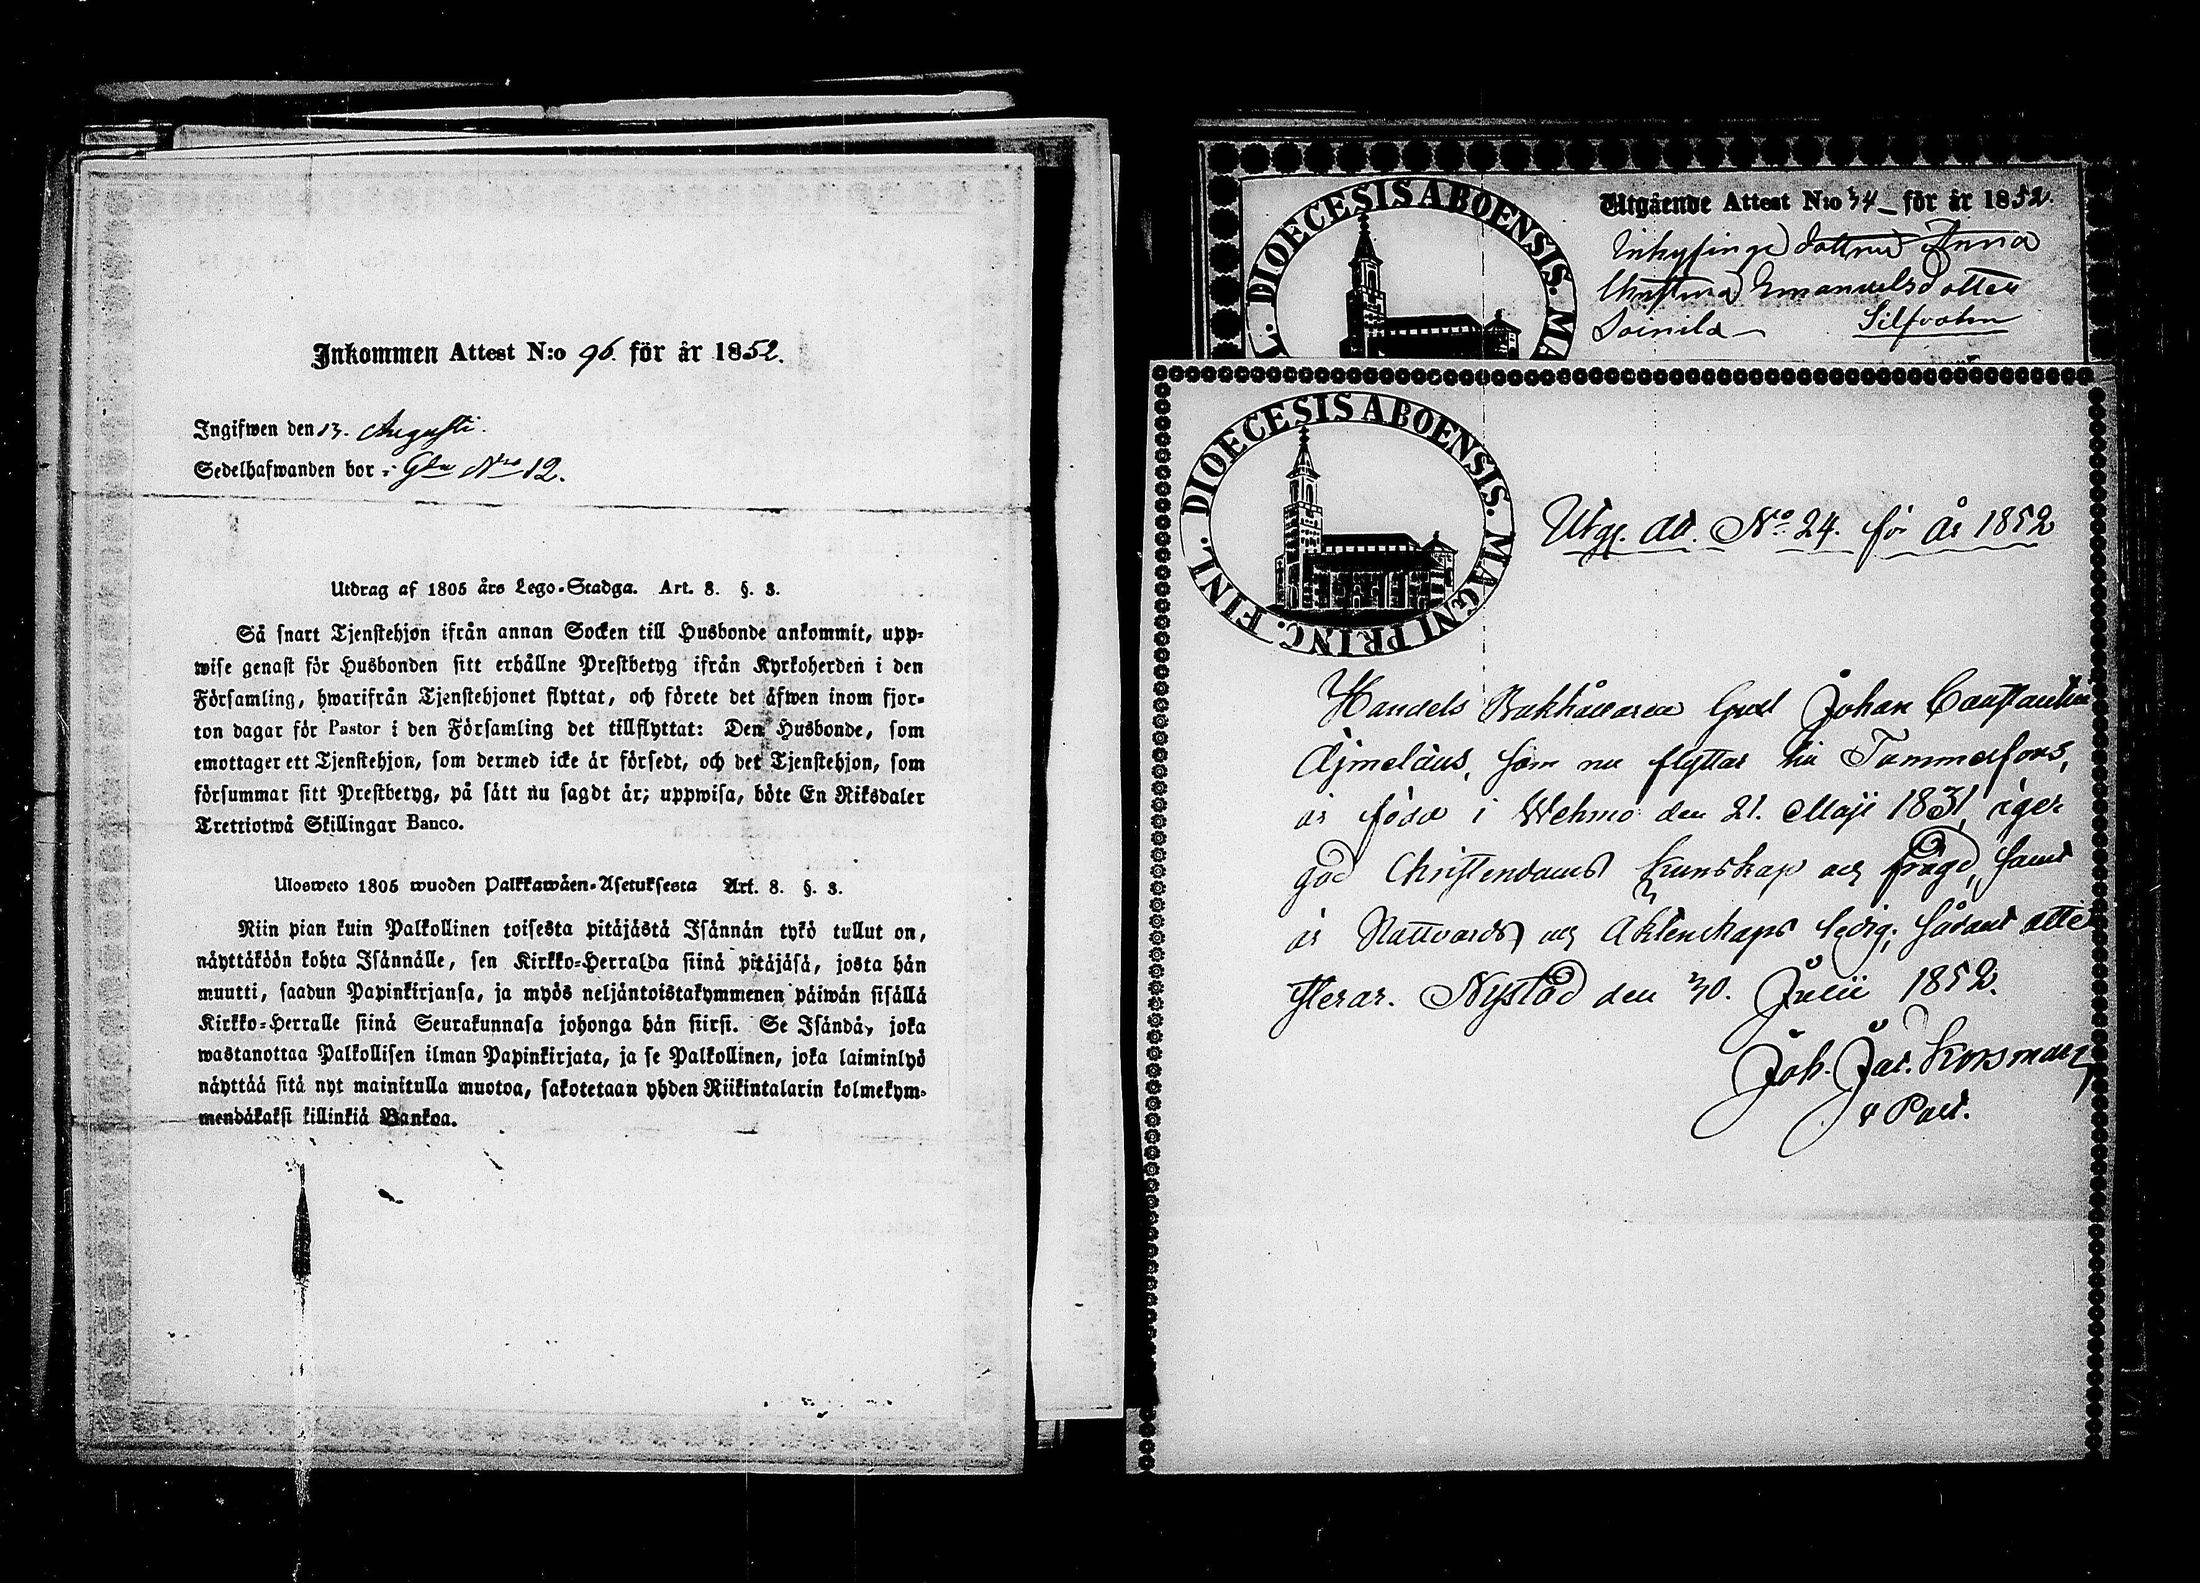 Inkommen Attest N:o 96. för år 1852.
Ingifwen den 13. Augusti.
Sedelhafwanden bor :- Gln Nro 12.
Utdrag af 1805 års Lego-Stadga. Art. 8. §. 3.
Så snart Tjenstehjon ifrån annan Socken till Husbonde ankommit, upp-
wise genast för Husbonden sitt erhållne Prestbetyg ifrån Kyrkoherden i den
Församling, hwarifrån Tjenstehjonet flyttat, och förete det äfwen inom fjor-
ton dagar för Pastor i den Församling det tillflyttat: Den Husbonde, som
emottager ett Tjenstehjon, som dermed icke är försedt, och det Tjenstehjon, som
försummar sitt Prestbetyg, på sätt nu sagdt är; uppwisa, böte En Riksdaler
Trettiotwå Skillingar Banco.
Ulosweto 1805 wuoden Palkkawäen-Asetuksesta Art. 8. §. 3.
Niin pian kuin Palkollinen toisesta pitäjästä Isännän tykö tullut on,
näyttäköön kohta Isännälle, sen Kirkko-Herralda siinä pitäjäsä, josta hän
muutti, saadun Papinkirjansa, ja myös neljäntoistakymmenen päiwän sisällä
Kirkko-Herralle siinä Seurakunnasa johonga hän siirsi. Se Isändä, joka
wastanottaa Palkollisen ilman Papinkirjata, ja se Palkollinen, joka laiminlyö
näyttää sitä nyt mainitulla muotoa, sakotetaan yhden Riikintalarin kolmekym-
mendäkaksi killinkiä Bankoa.
DIOECESIS ABOENSIS. MA
L.
Utgående Attest N:o 34 för år 1852.
Inhysinge dottren Anna
Christina Emanuelsdotter
Soinila
DIOECESIS ABOENSIS. MAGNI PRINC. FINL.
Utg. att. No. 24. för år 1852
Handels Bokhållaren Johan Constantin
Ajmeläus, som nu flyttar till Tammerfors,
är född i Wehmo den 21. Maji 1831, eger
god Christendoms kunskap och frägd, samt
är Nattvards och Äktenskaps ledig; sådant atte-
sterar. Nystad den 30. Julii 1852.
Joh. Jac. Korsman
v Past.